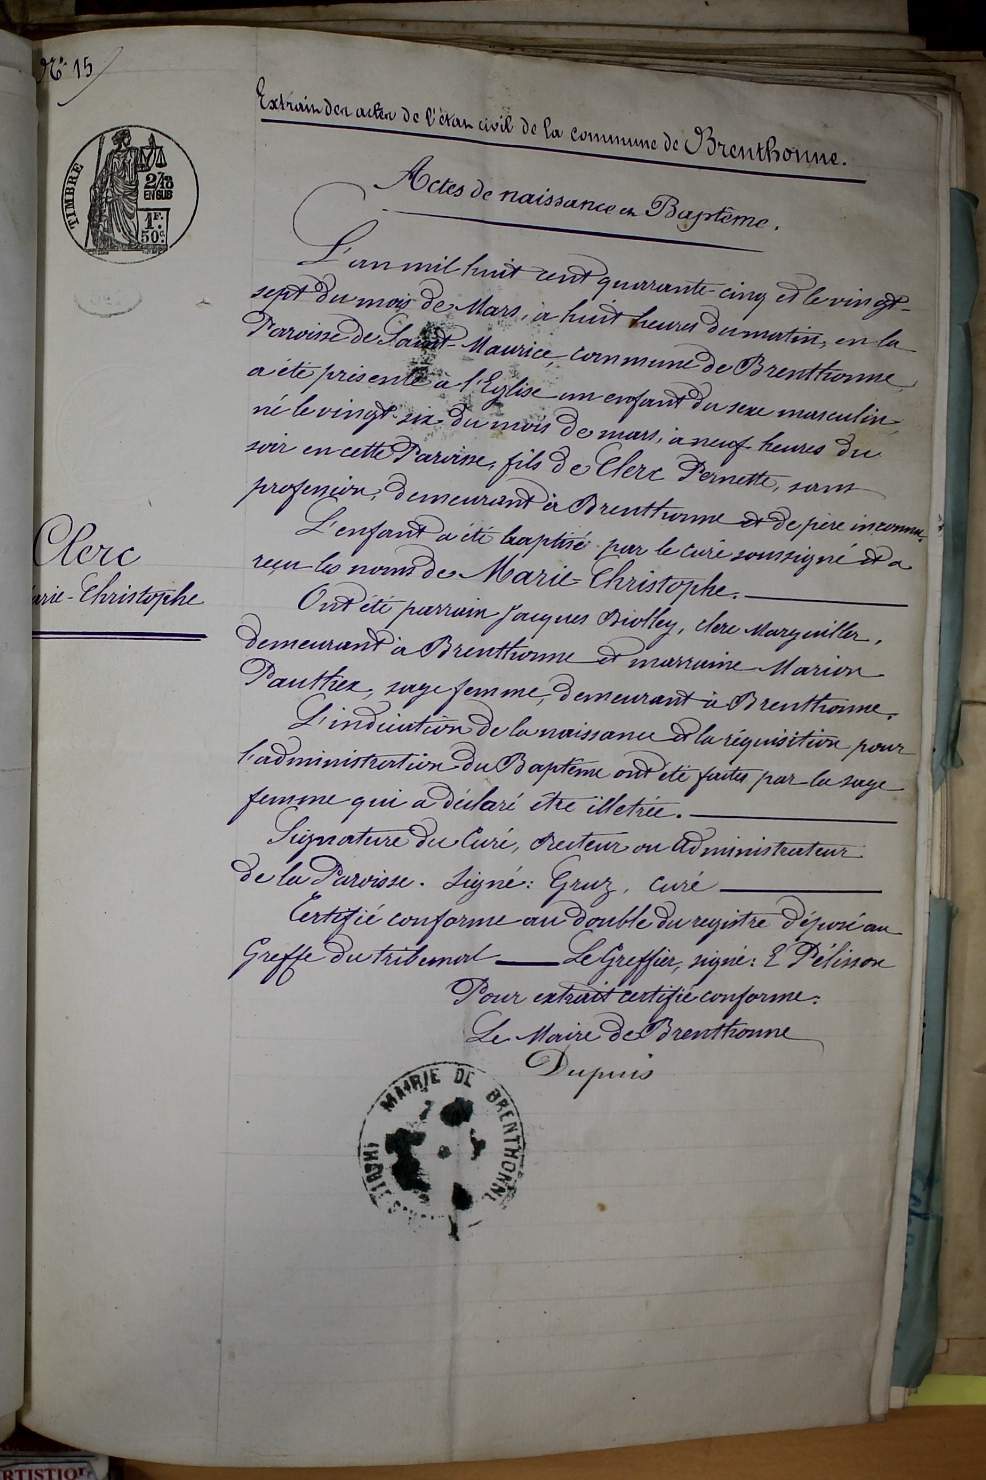 N° 15
Extrait des actes de l'état civil de la commune de Brenthonne.
Actes de naissance et Baptême.
TIMBRE
2/10
EN SUS
1F.
50c.
L'an mil huit cent quarante-cinq et le vingt-
sept du mois de Mars, à huit heures du matin, en la
Paroisse de Saint-Maurice, commune de Brenthonne,
a été présenté à l'Eglise un enfant du sexe masculin,
né le vingt-six du mois de mars, à neuf heures du
soir en cette Paroisse, fils de Clerc Pernette, sans
profession, demeurant à Brenthonne et de père inconnu.
L'enfant a été baptisé par le curé soussigné et a
reçu les noms de Marie-Christophe.
Clerc
arie-Christophe
Ont été parrain Jacques Biolley, clerc Marguiller,
demeurant à Brenthonne et marraine Marion
Pauthex, sage femme, demeurant à Brenthonne.
L'indication de la naissance et la réquisition pour
l'administration du Baptême ont été faites par la sage
femme qui a déclaré être illetrée.
Signature du Curé, Recteur ou Administrateur
de la Paroisse. Signé: Gruz, curé
Certifié conforme au double du registre déposé au
Greffe du tribunal Le Greffier, signé: E Pélisson
Pour extrait certifié conforme:
Le Maire de Brenthonne
Dupuis
MAIRIE DE BRENTHONNE
RTISTIQ